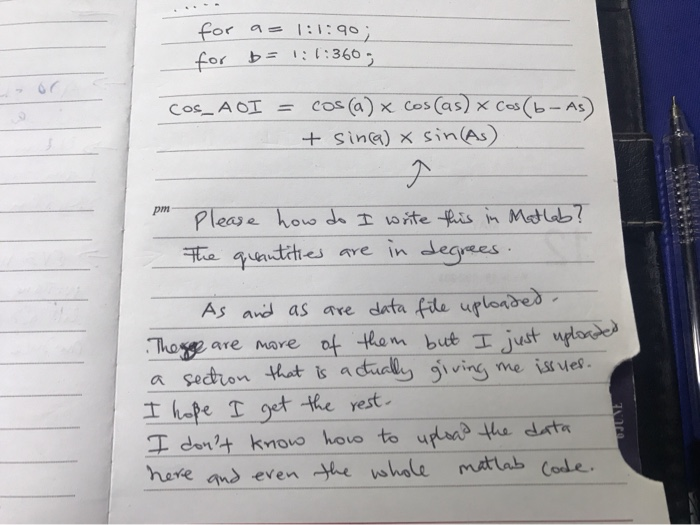 for a = 1:1:90;
for b = 1:1:360;
COS_AOI = cos(a) x cos(as) x cos(b - As)
+ sin(a) x sin(As)
pm
Please how do I write this in Matlab?
The quantities are in degrees.
As and as are data file uploaded.
These are more of them but I just uploaded
a section that is actually giving me issues.
I hope I get the rest.
I don't know how to upload the data
here and even the whole matlab code.
JUNE